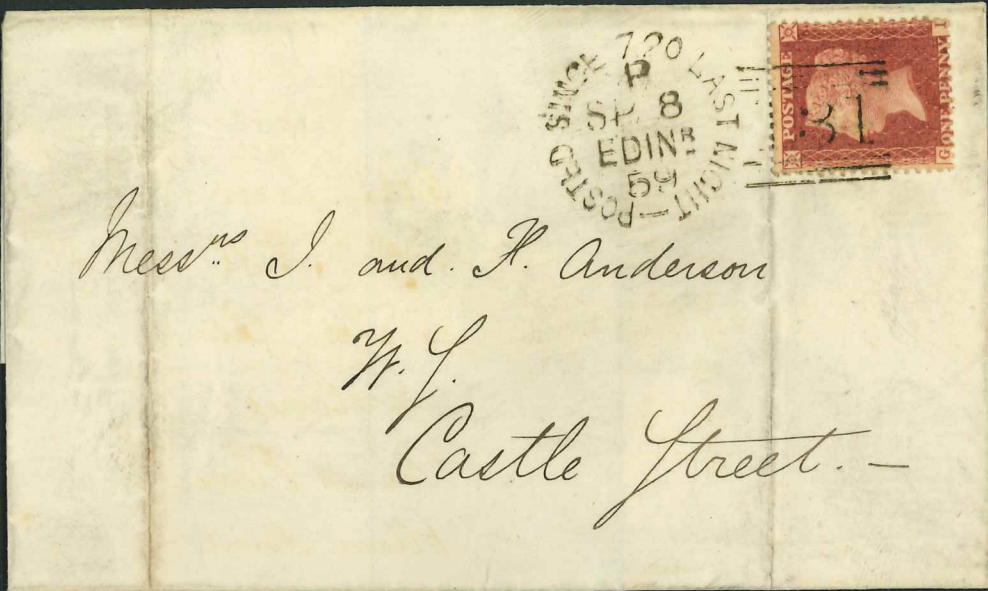 POSTED SINCE 7.20 LAST NIGHT —
P
SP 8
EDINR
59
131
POSTAGE
ONE PENNY
G I
Messrs. J. and. H. Anderson
W. S.
Castle Street. —